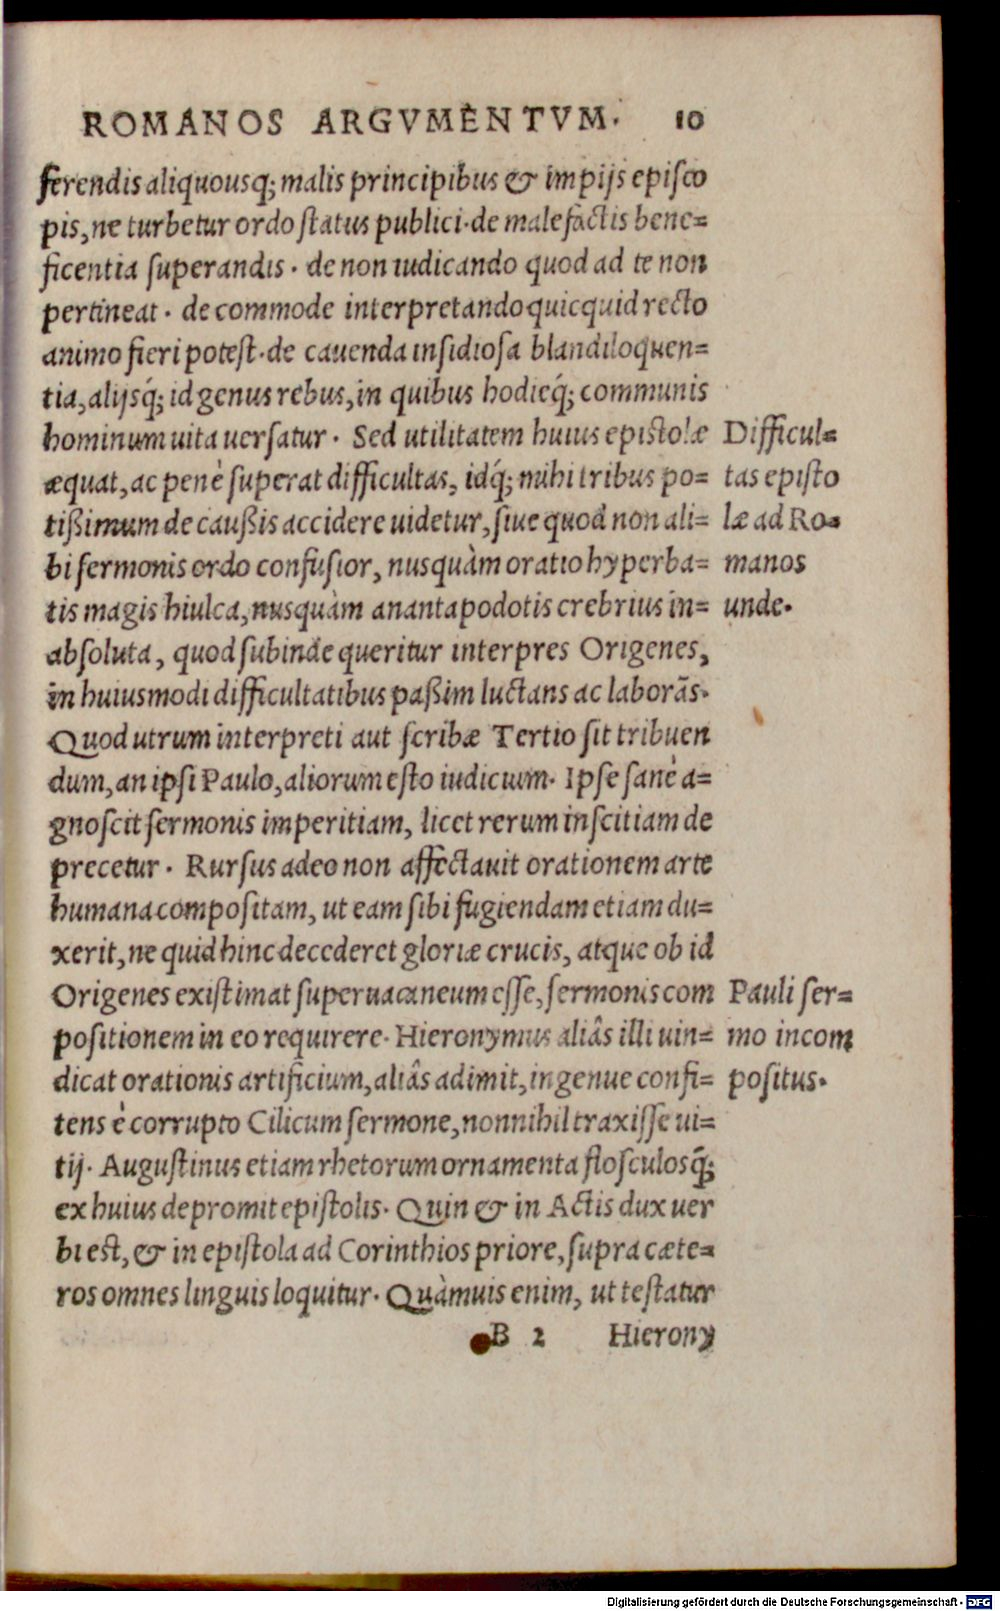 ROMANOS ARGVMENTVM. 10
ferendis aliquousq; malis principibus & impijs episco
pis, ne turbetur ordo status publici. de malefactis bene=
ficentia superandis. de non iudicando quod ad te non
pertineat. de commode interpretando quicquid recto
animo fieri potest. de cauenda insidiosa blandiloquen=
tia, alijsq́; id genus rebus, in quibus hodieq́; communis
hominum uita uersatur. Sed utilitatem huius epistolæ
æquat, ac penè superat difficultas, idq́; mihi tribus po=
tißimum de caußis accidere uidetur, siue quod non ali=
bi sermonis ordo confusior, nusquàm oratio hyperba=
tis magis hiulca, nusquàm anantapodotis crebrius in=
absoluta, quod subinde queritur interpres Origenes,
in huiusmodi difficultatibus paßim luctans ac laborãs.
Quod utrum interpreti aut scribæ Tertio sit tribuen
dum, an ipsi Paulo, aliorum esto iudicium. Ipse sanè a=
gnoscit sermonis imperitiam, licet rerum inscitiam de
precetur. Rursus adeo non affectauit orationem arte
humana compositam, ut eam sibi fugiendam etiam du=
xerit, ne quid hinc decederet gloriæ crucis, atque ob id
Origenes existimat superuacaneum esse, sermonis com
positionem in eo requirere. Hieronymus aliâs illi uin=
dicat orationis artificium, aliâs adimit, ingenue confi=
tens è corrupto Cilicum sermone, nonnihil traxisse ui=
tij. Augustinus etiam rhetorum ornamenta flosculosq́;
ex huius depromit epistolis. Quin & in Actis dux uer
bi est, & in epistola ad Corinthios priore, supra cæte=
ros omnes linguis loquitur. Quàmuis enim, ut testatur
B 2 Hierony
Difficul=
tas episto
læ ad Ro=
manos
unde.
Pauli ser=
mo incom
positus.
Digitalisierung gefördert durch die Deutsche Forschungsgemeinschaft - DFG